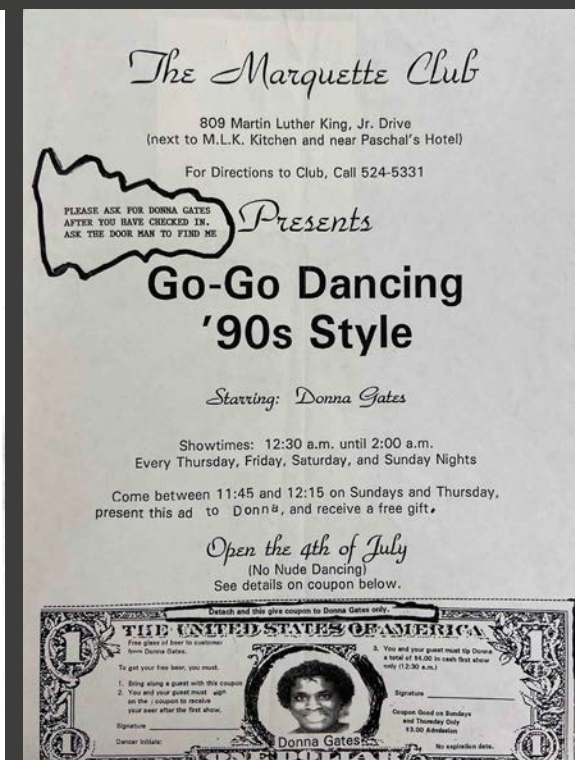 The Marquette Club
809 Martin Luther King, Jr. Drive
(next to M.L.K. Kitchen and near Paschal's Hotel)
For Directions to Club, Call 524-5331
PLEASE ASK FOR DONNA GATES
AFTER YOU HAVE CHECKED IN.
ASK THE DOOR MAN TO FIND ME
Presents
Go-Go Dancing
'90s Style
Starring: Donna Gates
Showtimes: 12:30 a.m. until 2:00 a.m.
Every Thursday, Friday, Saturday, and Sunday Nights
Come between 11:45 and 12:15 on Sundays and Thursday,
present this ad to Donna, and receive a free gift.
Open the 4th of July
(No Nude Dancing)
See details on coupon below.
Detach and this give coupon to Donna Gates only.
THE UNITED STATES OF AMERICA
1
1
Free glass of beer to customer
from Donna Gates.
To get your free beer, you must.
1. Bring along a guest with this coupon
2. You and your guest must sign
on the coupon to receive
your beer after the first show.
Signature
Dancer Initials:
3. You and your guest must tip Donna
a total of $4.00 in cash first show
only (12:30 a.m.)
Signature
Coupon Good on Sundays
and Thursday Only
$3.00 Admission
No expiration date.
Donna Gates
1
1
ONE DOLLAR